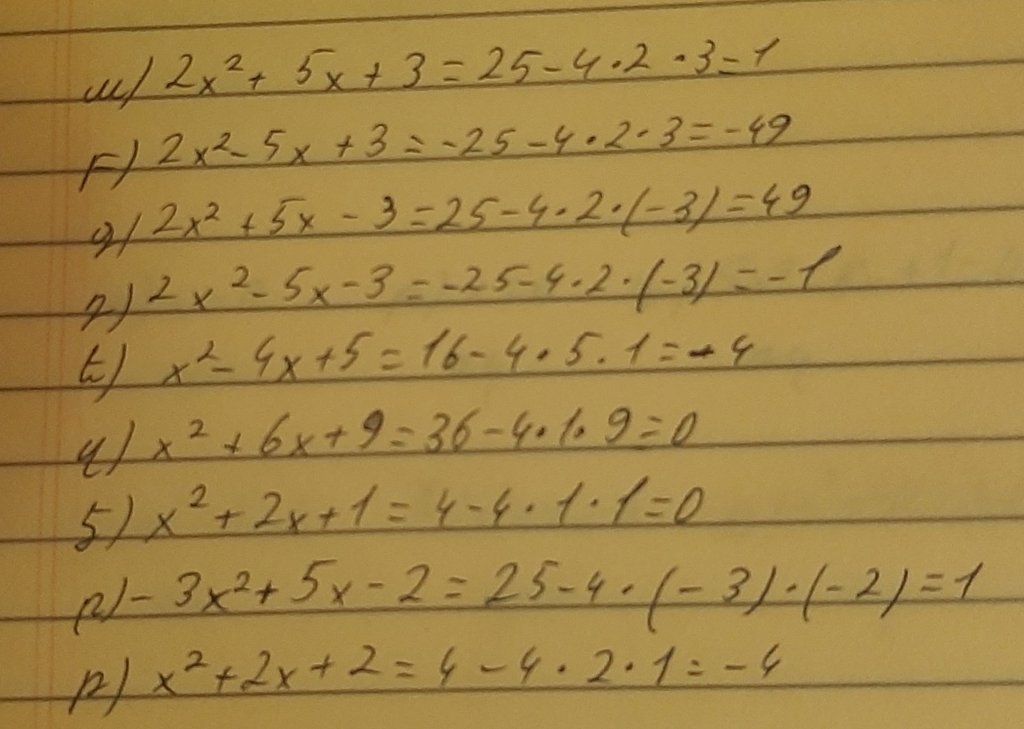 ա) 2x² + 5x + 3 = 25 - 4 · 2 · 3 = 1
բ) 2x² - 5x + 3 = -25 - 4 · 2 · 3 = -49
գ) 2x² + 5x - 3 = 25 - 4 · 2 · (-3) = 49
դ) 2x² - 5x - 3 = -25 - 4 · 2 · (-3) = -1
ե) x² - 4x + 5 = 16 - 4 · 5 · 1 = -4
զ) x² + 6x + 9 = 36 - 4 · 1 · 9 = 0
է) x² + 2x + 1 = 4 - 4 · 1 · 1 = 0
ը) -3x² + 5x - 2 = 25 - 4 · (-3) · (-2) = 1
թ) x² + 2x + 2 = 4 - 4 · 2 · 1 = -4